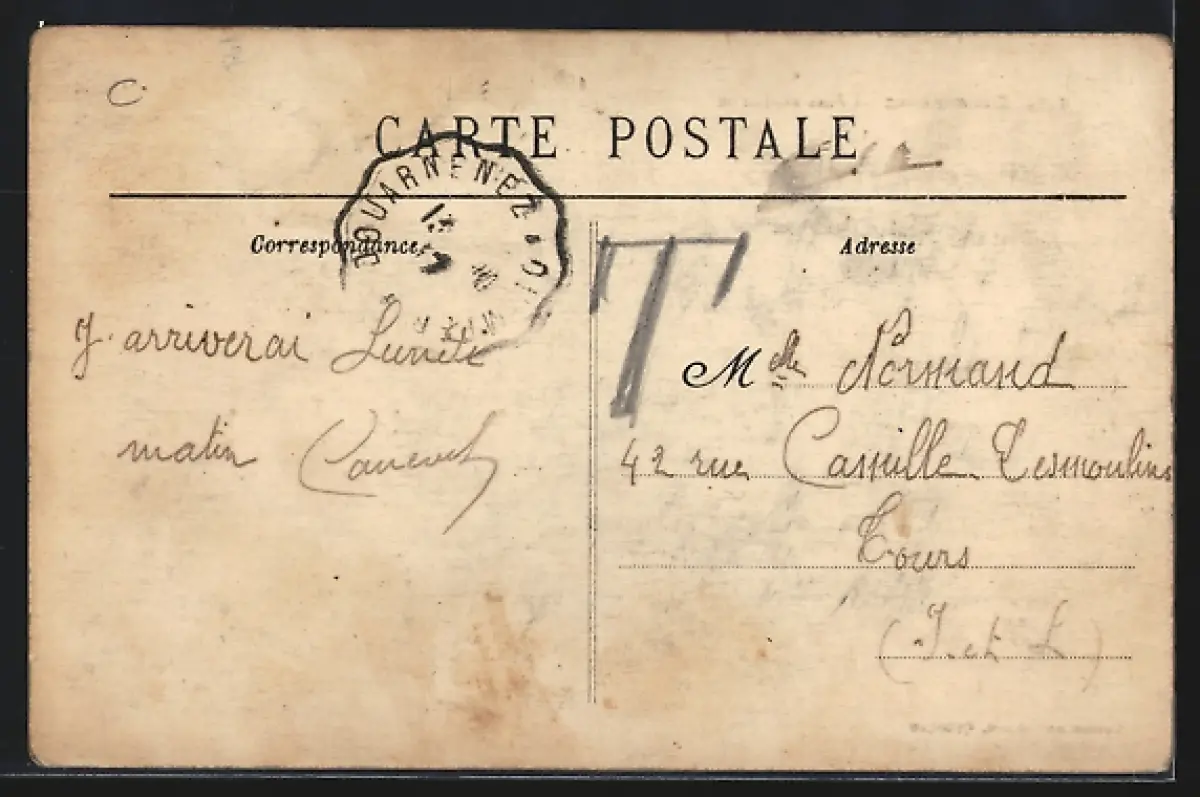 C
CARTE POSTALE
DOUARNENEZ
Correspondance
Adresse
T
J. arriverai Lundi
matin
Mlle Normand
42 rue Camille Desmoulins
Tours
(I. et L)